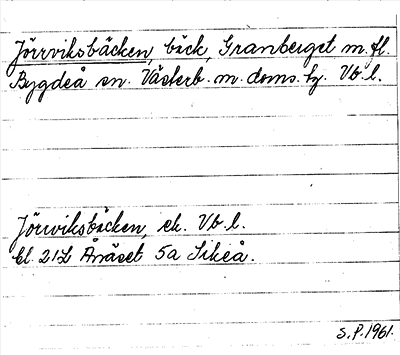 Jörrviksbäcken, bäck, Granberget m. fl.
Bygdeå sn. Västerb. m. doms. hg. Vb. l.
Jörrviksbäcken, ek. Vb. l.
bl. 21L Ånäset 5a Sikeå.
S.P. 1961.